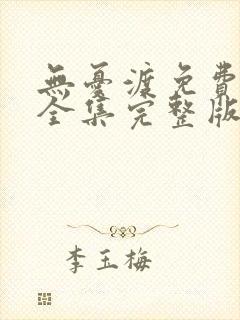 無憂渡免費
全集完整版
李玉梅